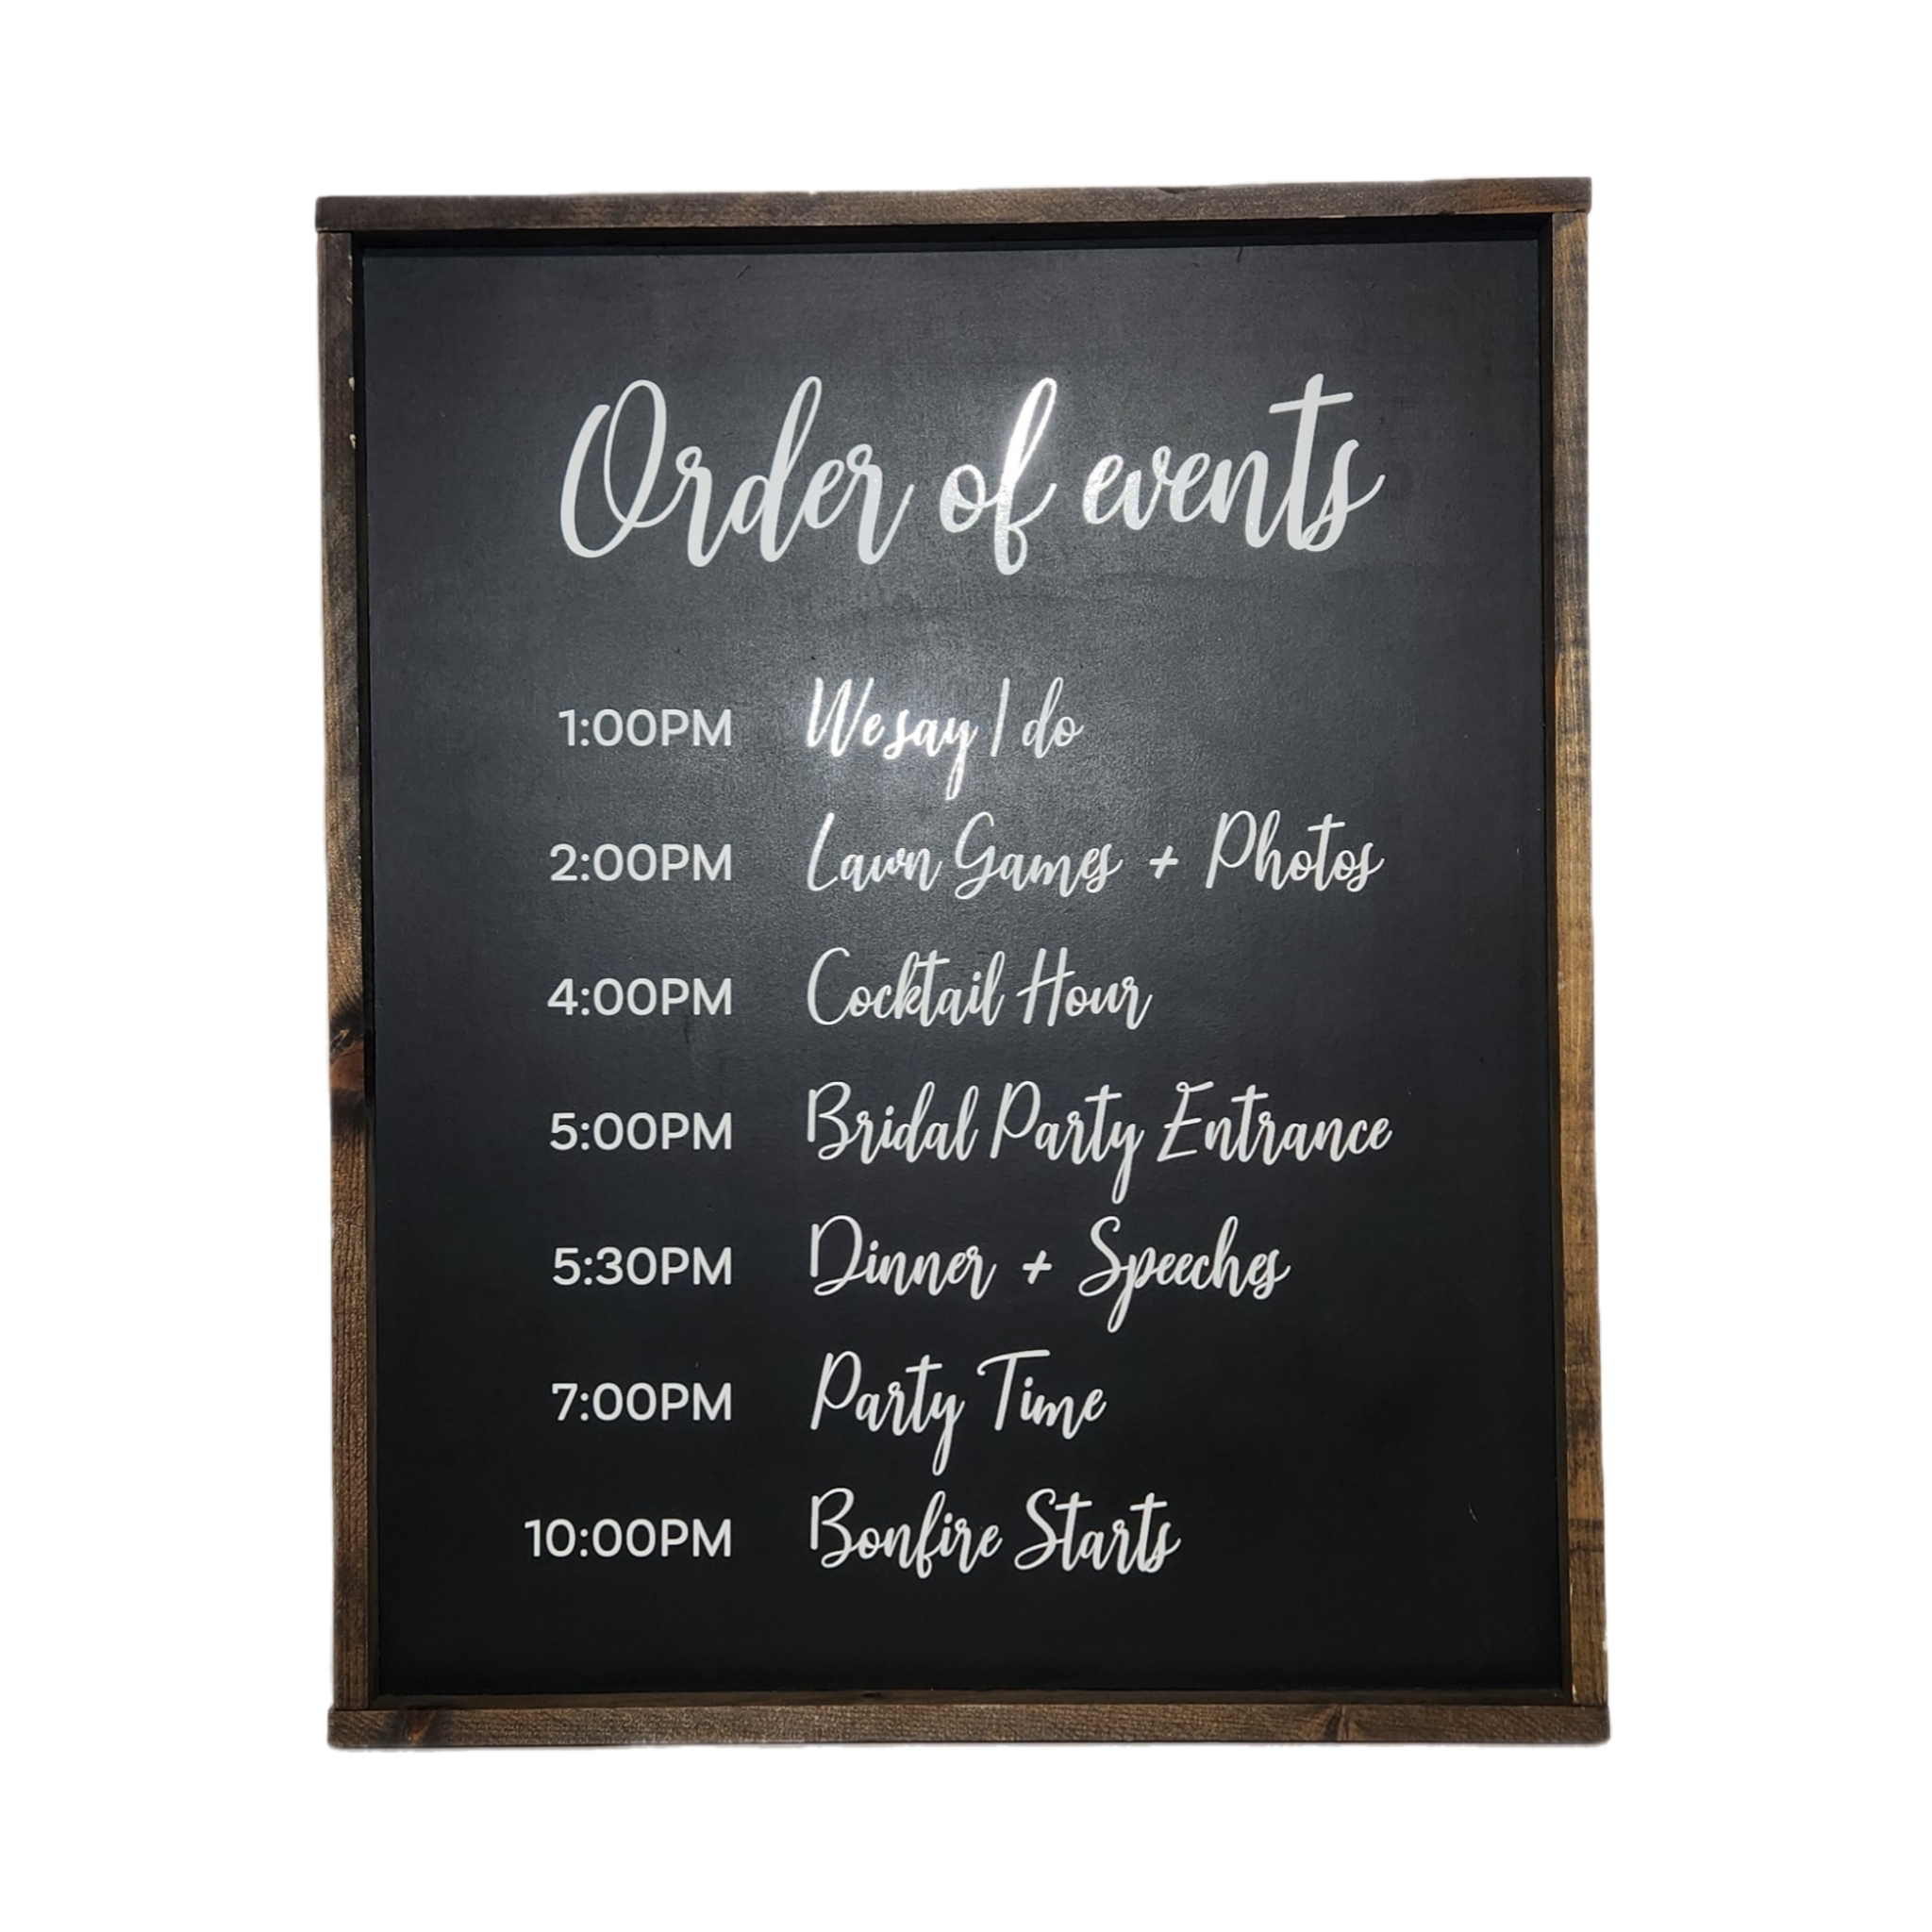 Order of events
1:00PM We say I do
2:00PM Lawn Games + Photos
4:00PM Cocktail Hour
5:00PM Bridal Party Entrance
5:30PM Dinner + Speeches
7:00PM Party Time
10:00PM Bonfire Starts